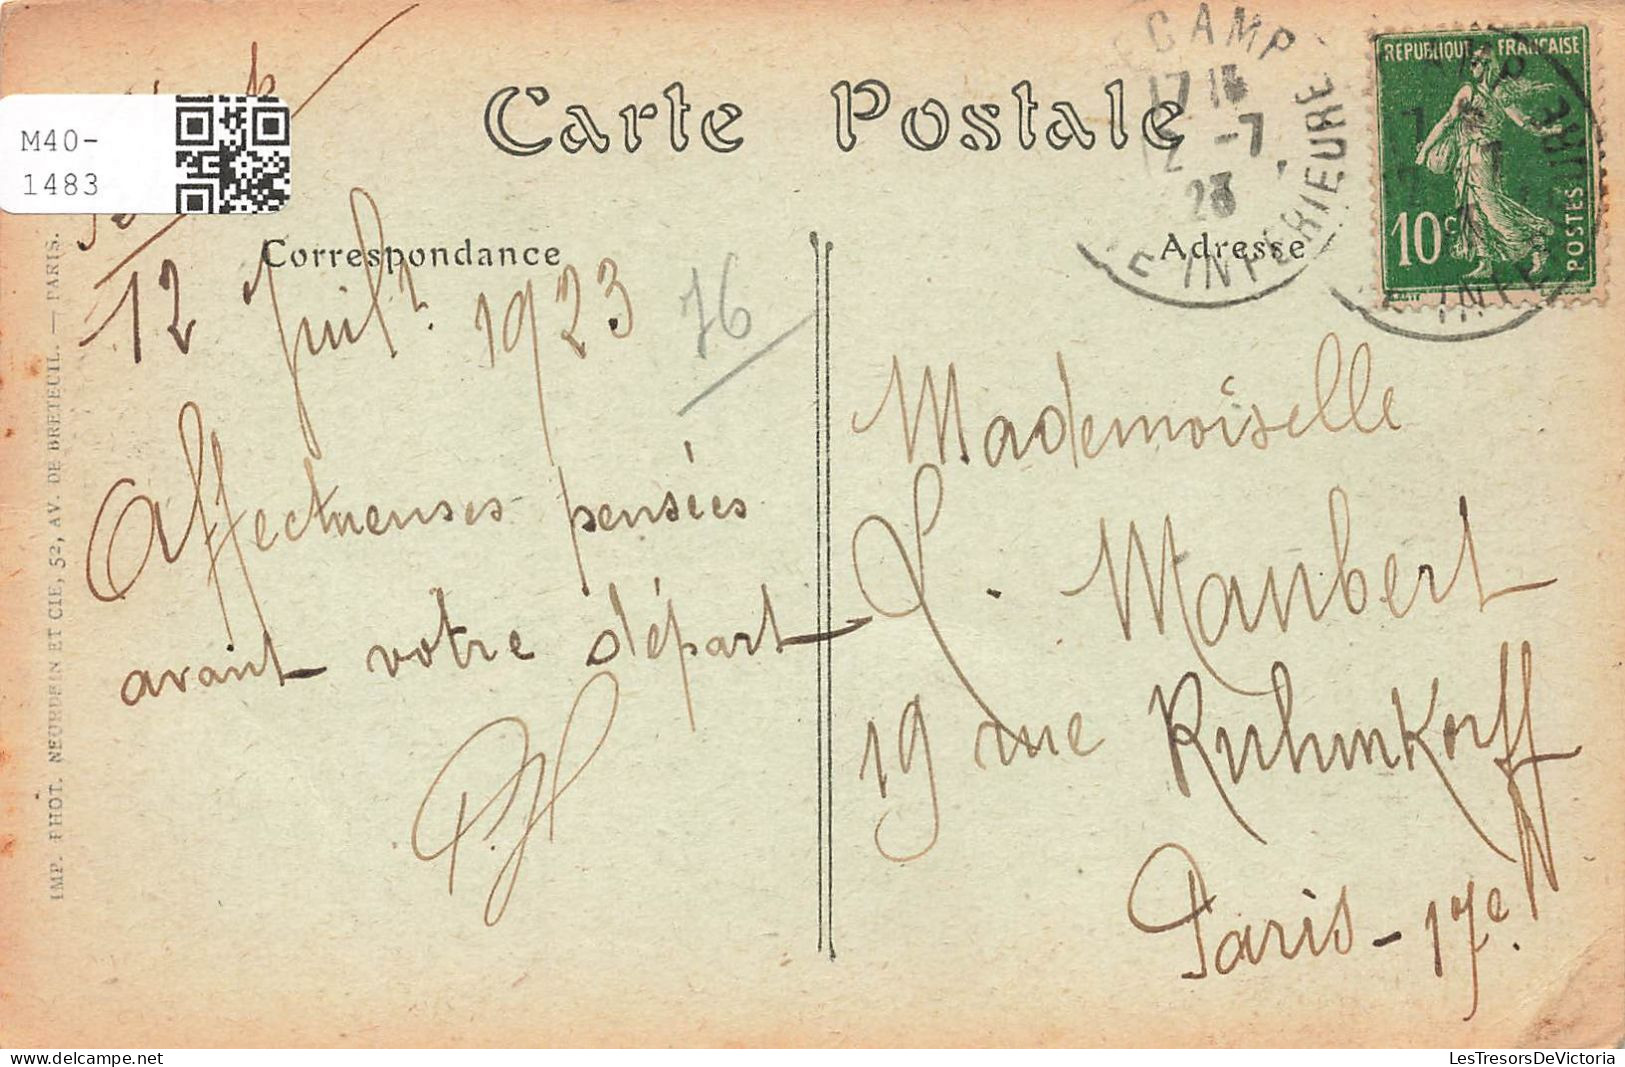 Carte Postale
M40-
1483
Correspondance
Adresse
12 Juilt. 1923
76
Affectueuses pensées
avant votre départ
Mademoiselle
L. Maubert
19 rue Ruhmkorff
Paris - 17e.
IMP. PHOT. NEURDEIN ET CIE, 52, AV. DE BRETEUIL. — PARIS.
REPUBLIQUE FRANÇAISE
10c
POSTES
ECAMP
17 15
12 -7
23
E INFERIEURE
LesTresorsDeVictoria